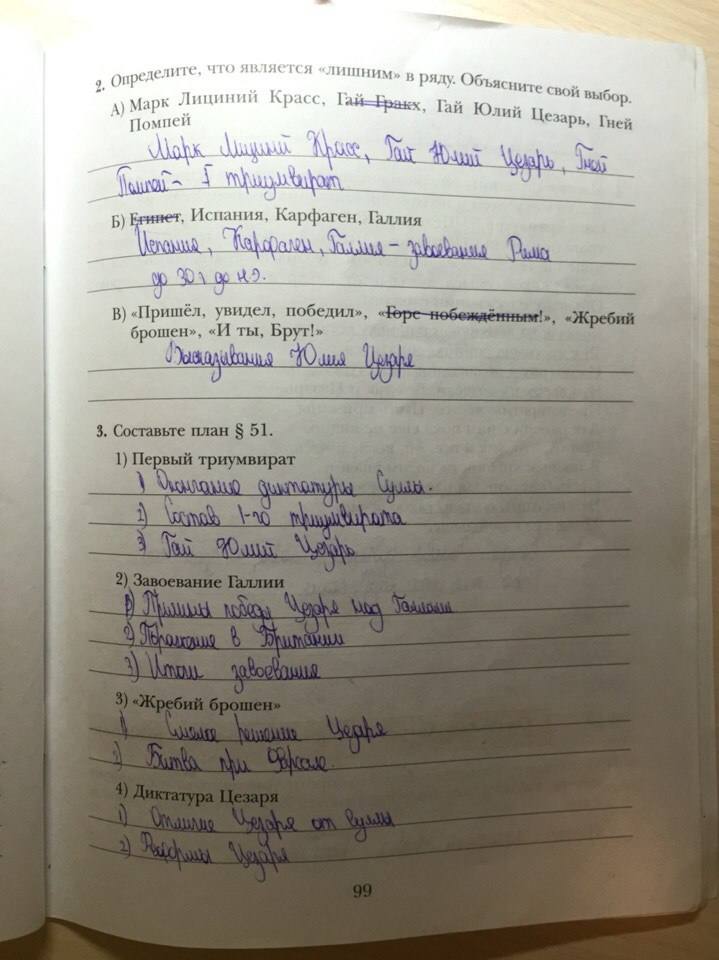 2. Определите, что является «лишним» в ряду. Объясните свой выбор.
А) Марк Лициний Красс, Гай Гракх, Гай Юлий Цезарь, Гней
Помпей
Марк Лициний Красс, Гай Юлий Цезарь, Гней
Помпей – I триумвират
Б) Египет, Испания, Карфаген, Галлия
Испания, Карфаген, Галлия – завоевания Рима
до 30 г до н.э.
В) «Пришёл, увидел, победил», «Горе побеждённым!», «Жребий
брошен», «И ты, Брут!»
Высказывания Юлия Цезаря
3. Составьте план § 51.
1) Первый триумвират
1) Окончание диктатуры Суллы.
2) Состав 1-го триумвирата
3) Гай Юлий Цезарь
2) Завоевание Галлии
1) Причины победы Цезаря над Галлами
2) Поражение в Британии
3) Итоги завоевания
3) «Жребий брошен»
1) Смелое решение Цезаря
2) Битва при Фарсале.
4) Диктатура Цезаря
1) Отличие Цезаря от Суллы
2) Реформы Цезаря
99